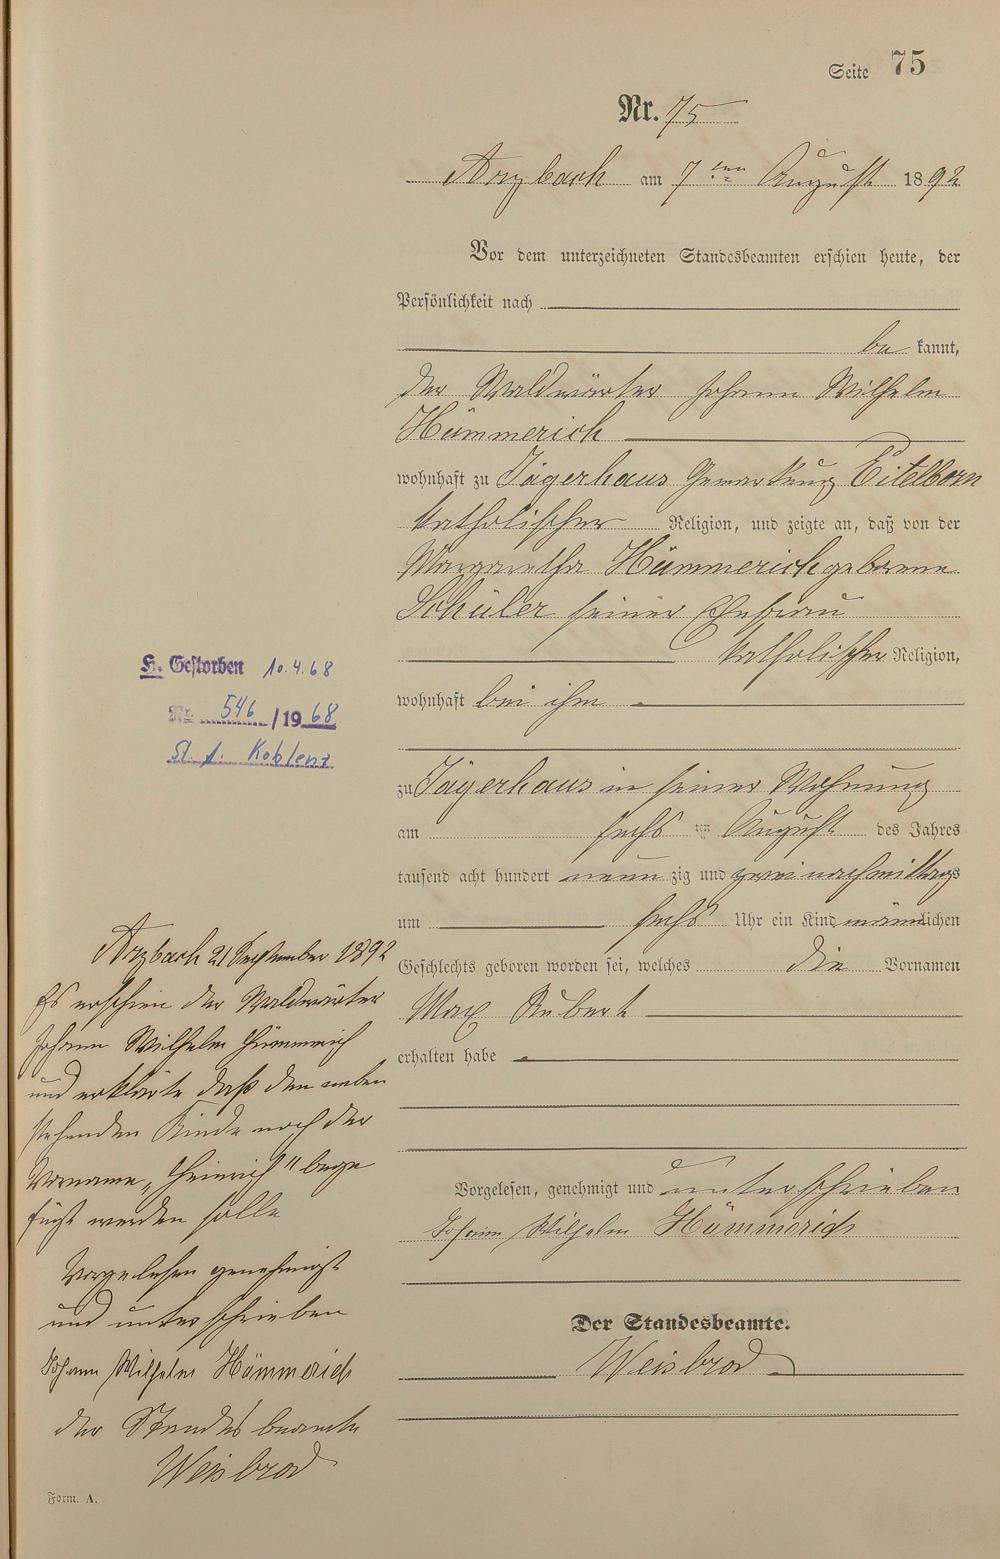 Seite 75
Nr. 75
Arzbach am 7ten August 1892
Vor dem unterzeichneten Standesbeamten erschien heute, der
Persönlichkeit nach
be kannt,
der Waldwärter Johann Wilhelm
Hümmerich
wohnhaft zu Jägerhaus Gemarkung Eitelborn
katholischer Religion, und zeigte an, daß von der
Margaretha Hümmerich geborene
Schüler seiner Ehefrau
katholischer Religion,
wohnhaft bei ihm
zu Jägerhaus in seiner Wohnung
am sechs ten August des Jahres
tausend acht hundert neun zig und zwei nachmittags
um sechs Uhr ein Kind männlichen
Geschlechts geboren worden sei, welches die Vornamen
Max Hubert
erhalten habe
Vorgelesen, genehmigt und unterschrieben
Johann Wilhelm Hümmerich
Der Standesbeamte.
Weisbrod
Gestorben 10.4.68
Nr. 546 /1968
St. A. Koblenz
Arzbach 21 September 1892
Es erschien der Waldwärter
Johann Wilhelm Hümmerich
und erklärte daß den neben
stehenden Kinde noch der
Vorname „Heinrich" beige
fügt werden solle
Vorgelesen genehmigt
und unterschrieben
Johann Wilhelm Hümmerich
der Standesbeamte
Weisbrod
Form. A.